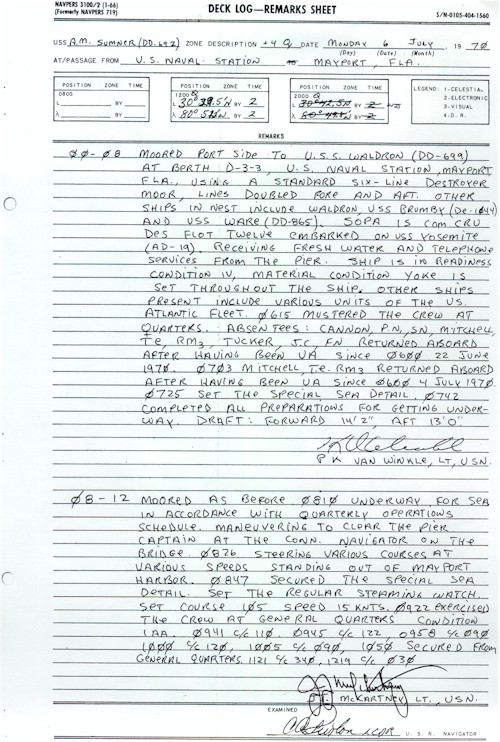 NAVPERS 3100/2 (1-66)
(Formerly NAVPERS 719)
DECK LOG—REMARKS SHEET
S/N-0105-404-1560
USS A.M. SUMNER (DD-692) ZONE DESCRIPTION +4 Q DATE MONDAY 6 JULY 1970
(Day) (Date) (Month)
AT/PASSAGE FROM U.S. NAVAL STATION TO MAYPORT, FLA.
POSITION ZONE TIME
0800
L BY
λ BY
POSITION ZONE TIME
1200 Q
L BY 2
λ BY 2
POSITION ZONE TIME
2000 Q
L 30° 42.5N BY 2
λ BY 2
LEGEND: 1-CELESTIAL
2-ELECTRONIC
3-VISUAL
4-D.R.
REMARKS
ØØ-Ø8 MOORED PORT SIDE TO U.S.S. WALDRON (DD-699)
AT BERTH D-3-3, U.S. NAVAL STATION, MAYPORT
FLA., USING A STANDARD SIX-LINE DESTROYER
MOOR, LINES DOUBLED FORE AND AFT. OTHER
SHIPS IN NEST INCLUDE WALDRON, USS BRUMBY (DE-1044)
AND USS WARE (DD-865). SOPA IS COM CRU
DES FLOT TWELVE EMBARKED ON USS YOSEMITE
(AD-19). RECEIVING FRESH WATER AND TELEPHONE
SERVICES FROM THE PIER. SHIP IS IN READINESS
CONDITION IV, MATERIAL CONDITION YOKE IS
SET THROUGHOUT THE SHIP. OTHER SHIPS
PRESENT INCLUDE VARIOUS UNITS OF THE U.S.
ATLANTIC FLEET. Ø615 MUSTERED THE CREW AT
QUARTERS. ABSENTEES: CANNON, P.N., SN, MITCHELL,
T.E., RM3, TUCKER, J.C., FN RETURNED ABOARD
AFTER HAVING BEEN UA SINCE Ø6ØØ 22 JUNE
197Ø. Ø7Ø3 MITCHELL, T.E. RM3 RETURNED ABOARD
AFTER HAVING BEEN UA SINCE Ø6ØØ 4 JULY 197Ø.
Ø725 SET THE SPECIAL SEA DETAIL. Ø742
COMPLETED ALL PREPARATIONS FOR GETTING UNDER-
WAY. DRAFT: FORWARD 14'2", AFT 13'Ø"
P K VAN WINKLE, LT, USN.
Ø8-12 MOORED AS BEFORE Ø81Ø UNDERWAY FOR SEA
IN ACCORDANCE WITH QUARTERLY OPERATIONS
SCHEDULE. MANEUVERING TO CLEAR THE PIER
CAPTAIN AT THE CONN. NAVIGATOR ON THE
BRIDGE. Ø826 STEERING VARIOUS COURSES AT
VARIOUS SPEEDS STANDING OUT OF MAYPORT
HARBOR. Ø847 SECURED THE SPECIAL SEA
DETAIL. SET THE REGULAR STEAMING WATCH.
SET COURSE 1Ø5 SPEED 15 KNTS. Ø922 EXERCISED
THE CREW AT GENERAL QUARTERS CONDITION
1AA. Ø941 C/C 11Ø. Ø945 C/C 122, Ø958 C/C Ø9Ø
1ØØØ C/C 12Ø, 1ØØ5 C/C Ø9Ø, 1Ø5Ø SECURED FROM
GENERAL QUARTERS. 1121 C/C 34Ø, 1219 C/C Ø3Ø
McKARTNEY LT., USN.
EXAMINED
U. S. N. NAVIGATOR